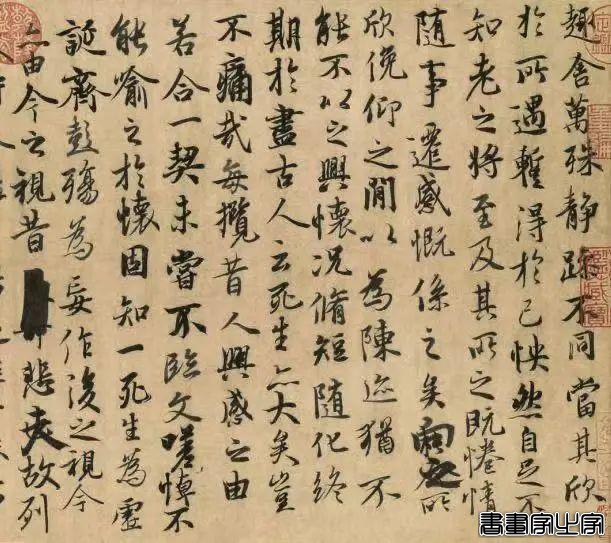 趣舍萬殊靜躁不同當其欣
於所遇暫得於己怏然自足不
知老之將至及其所之既惓情
隨事遷感慨係之矣向之所
欣俛仰之閒以為陳迹猶不
能不以之興懷況脩短隨化終
期於盡古人云死生亦大矣豈
不痛哉每攬昔人興感之由
若合一契未嘗不臨文嗟悼不
能喻之於懷固知一死生為虛
誕齊彭殤為妄作後之視今
亦由今之視昔悲夫故列